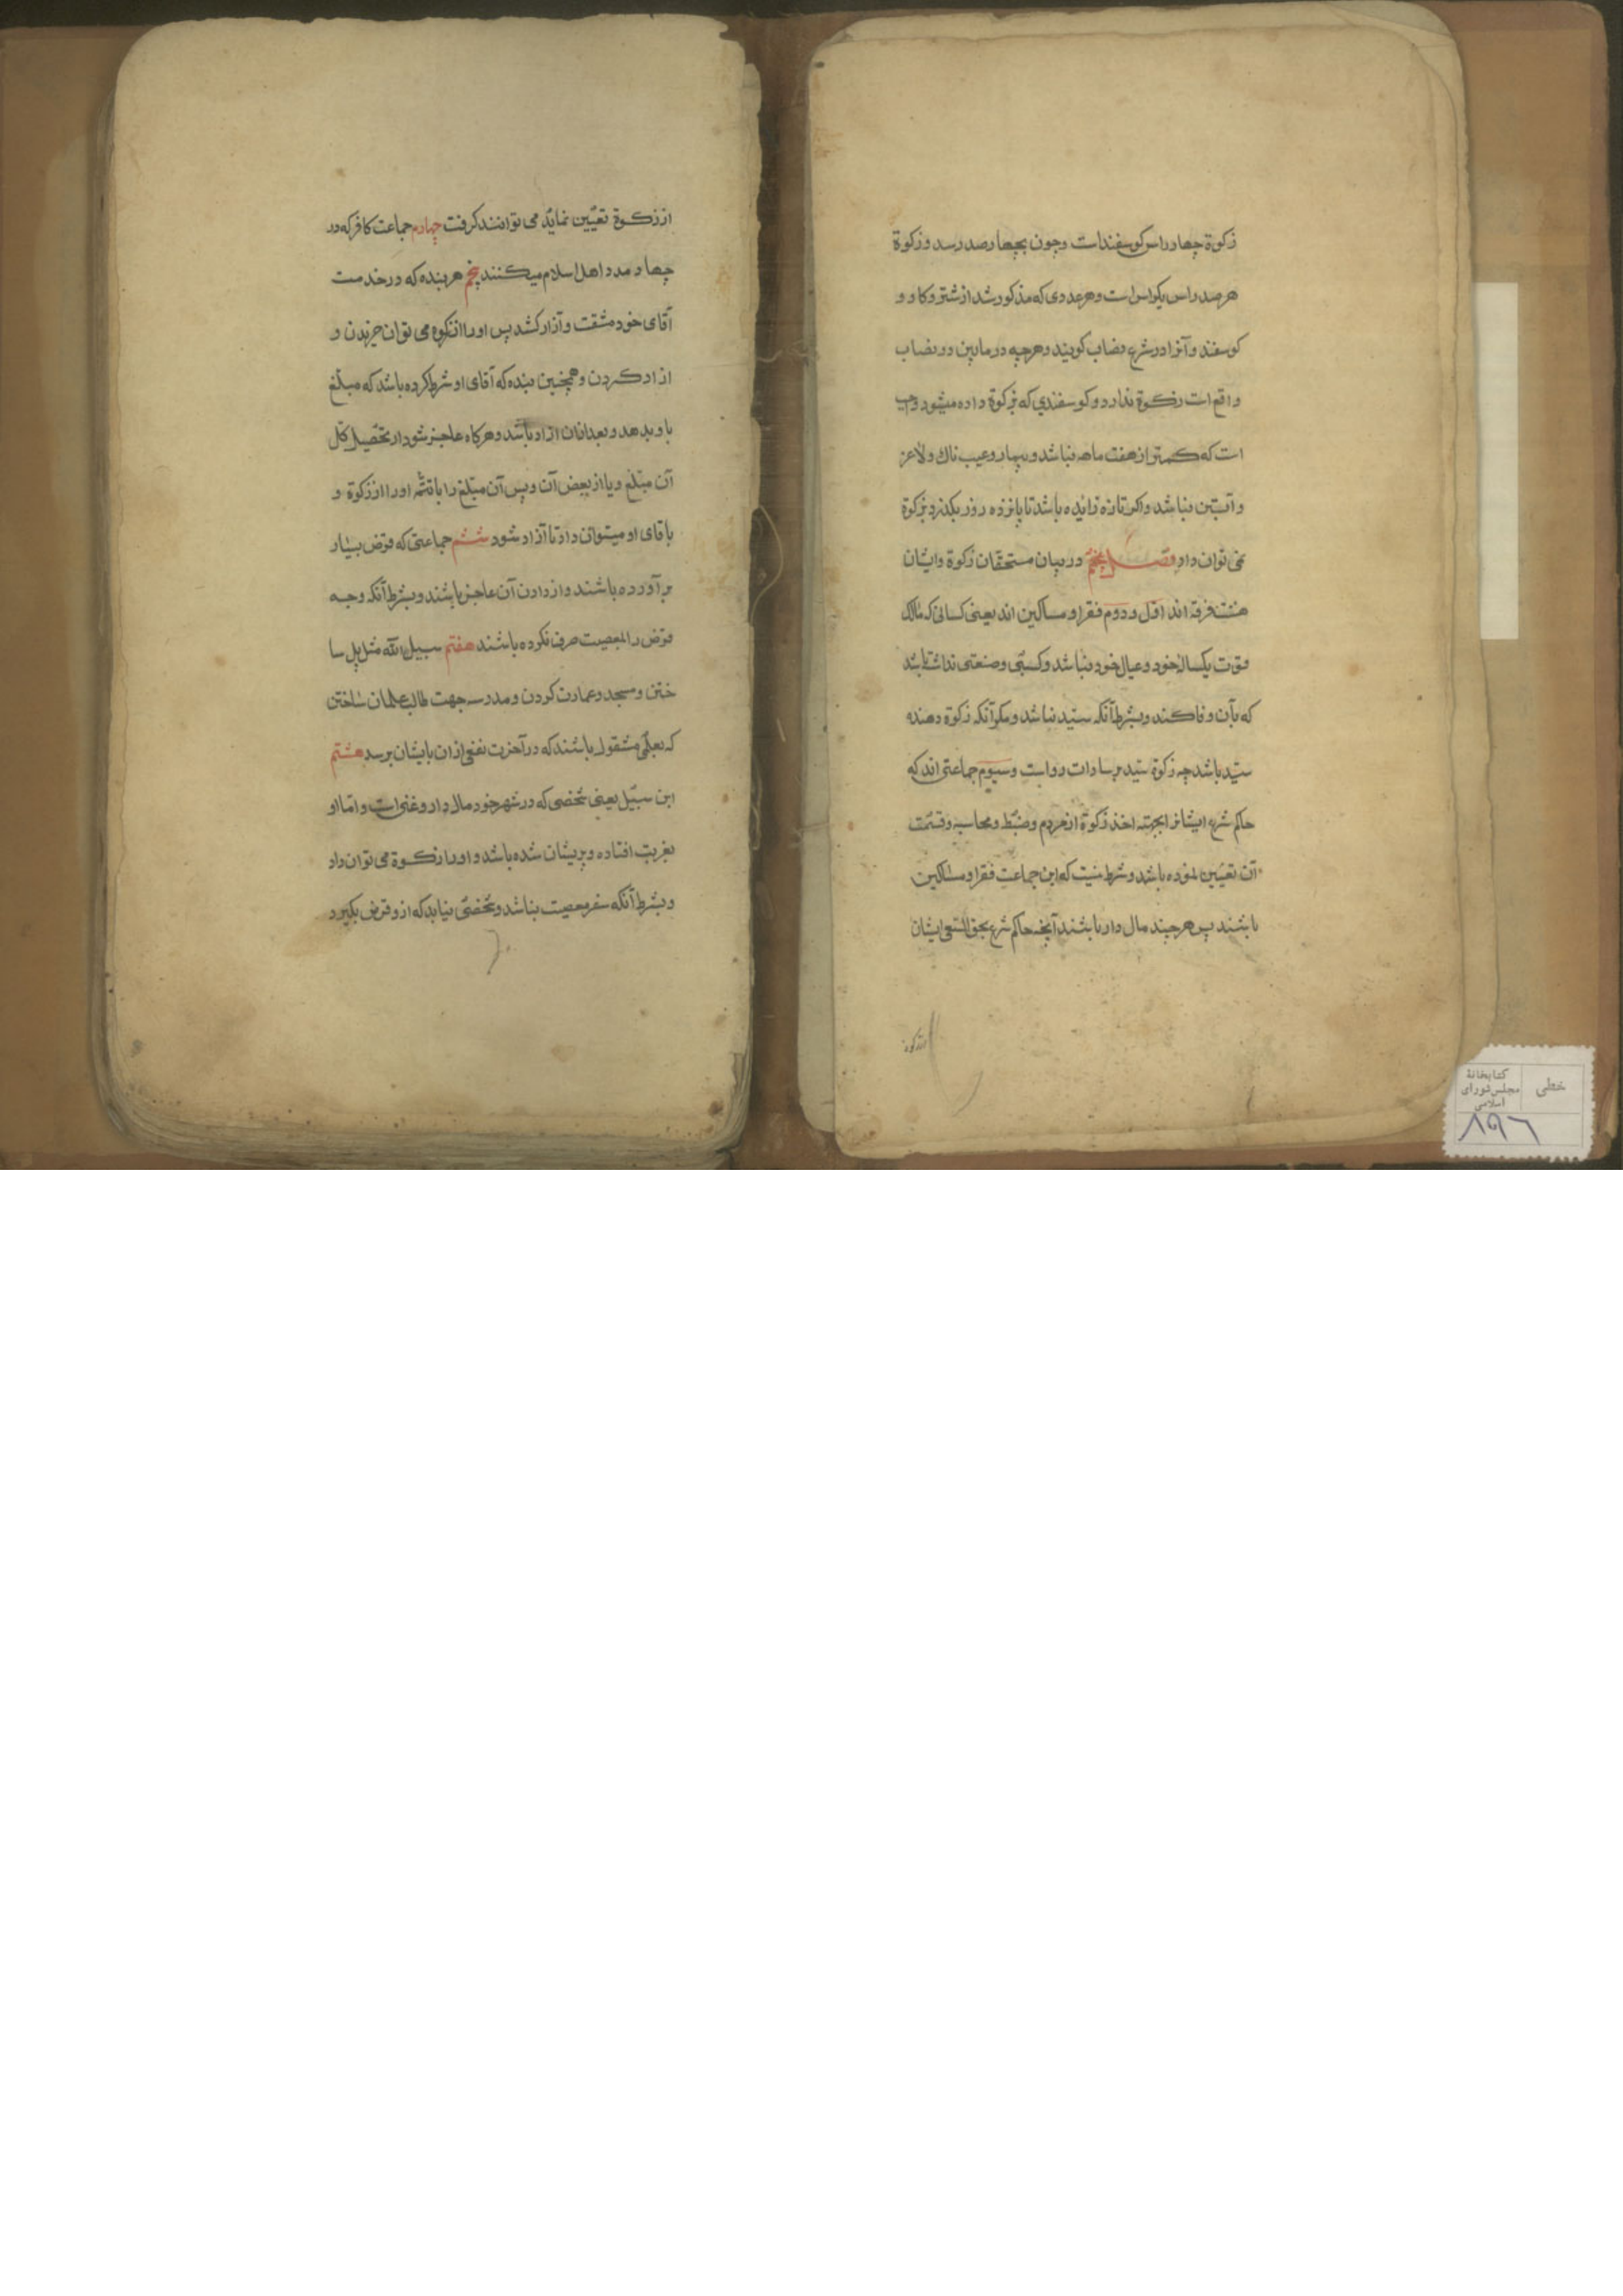 زکوة چهار راس کوسفند است وچون بچهارصد رسد و زکوة
هرصد راس یکراس است وهر عددی که مذکور شد از شتر وکاو و
کوسفند وآنرا در شرع نصاب کویند وهرچه درمابین دو نصاب
واقع است زکوة ندارد و کوسفندی که بزکوة داده میشود واجب
است که کمتر از هفت ماهه نباشد و بیمار وعیب ناک ولاغر
و آبستن نباشد واکر تازه زائیده باشد تا پانزده روز بکذرد بزکوة
نمی توان داد فصل پنجم در بیان مستحقان زکوة وایشان
هشت فرقه اند اول ودوم فقرا ومساکین اند یعنی کسانی که مالک
قوت یکساله خود وعیال خود نباشد وکسبی وصنعتی نداشته باشد
که بآن وفا کند وبشرط آنکه سید نباشد ومکر آنکه زکوة دهنده
سید باشد چه زکوة سید بر سادات رواست وسیوم جماعتی اند که
حاکم شرع ایشانرا بجهته اخذ زکوة از مردم وضبط ومحاسبه وقسمت
آن تعیین نموده باشد وشرط نیست که این جماعت فقرا ومساکین
باشند پس هرچند مال دار باشند آنچه حاکم شرع بحق السعی ایشان
از زکوة
از زکوة تعیین نماید می توانند کرفت چهارم جماعت کافر که در
جهاد مدد اهل اسلام میکنند پنجم هر بنده که در خدمت
آقای خود مشقت و آزار کشد پس اورا از زکوة می توان خریدن و
ازاد کردن و همچنین بنده که آقای او شرط کرده باشد که مبلغ
باو بدهد وبعد ازان ازاد باشد وهرکاه عاجز شود از تحصیل کل
آن مبلغ ویا از بعض آن وپس آن مبلغ را یا تتمه اورا از زکوة و
باقای او میتوان داد تا آزاد شود ششم جماعتی که قرض بسیار
برآورده باشند و از دادن آن عاجز باشند وبشرط آنکه وجه
قرض را بمعصیت صرف نکرده باشند هفتم سبیل الله مثل پل سا
ختن ومسجد وعمارت کردن ومدرسه جهت طالب علمان ساختن
که بعلمی مشغول باشند که در آخرت نفعی ازان بایشان برسد هشتم
ابن سبیل یعنی شخصی که در شهر خود مال دار وغنی است واما او
بغربت افتاده و پریشان شده باشد و اورا زکوة می توان داد
وبشرط آنکه سفر معصیت بناشد وشخصی نیابد که ازو قرض بکیرد
کتابخانهٔ
مجلس شورای
اسلامی
خطی
۸۹۶